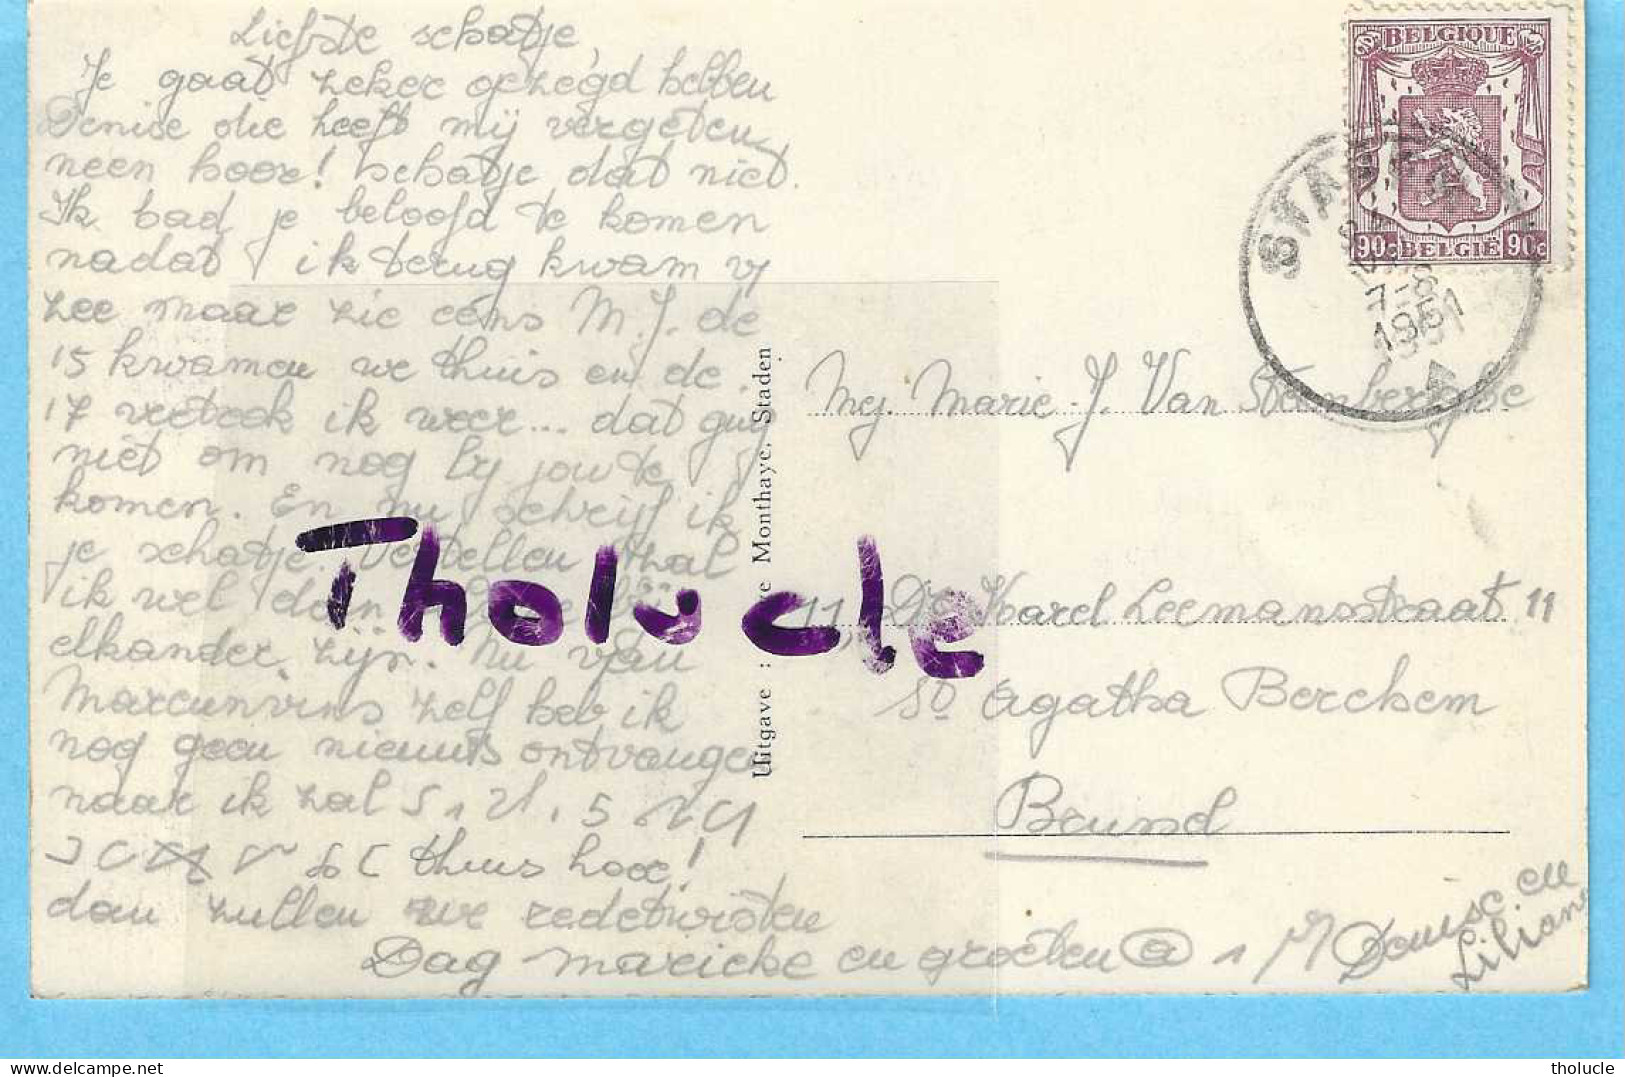 Liefste schatje,
Je gaat zeker gezegd hebben
Denise die heeft mij vergeten
neen hoor! schatje dat niet.
Ik had je beloofd te komen
nadat ik terug kwam v
zee maar zie eens M.J. de
15 kwamen we thuis en de
17 vertrek ik weer... dat ging
niet om nog by jou te
komen. En nu schrijf ik
je schatje. Vertellen zal
ik wel doen
elkander zijn. Nu van
zelf heb ik
nog geen nieuws ontvangen
maar ik zal
thuis hoor!
dan zullen we redetwisten
Dag marieke en groeten @ 1 Denise en
Liliane
BELGIQUE
90c BELGIË 90c
7-8
1951
Mej. Marie-J. Van Steenberghe
11, Dr Karel Leemansstraat 11
St Agatha Berchem
Brussel
Uitgave : Monthaye, Staden
Tholucle
tholucle